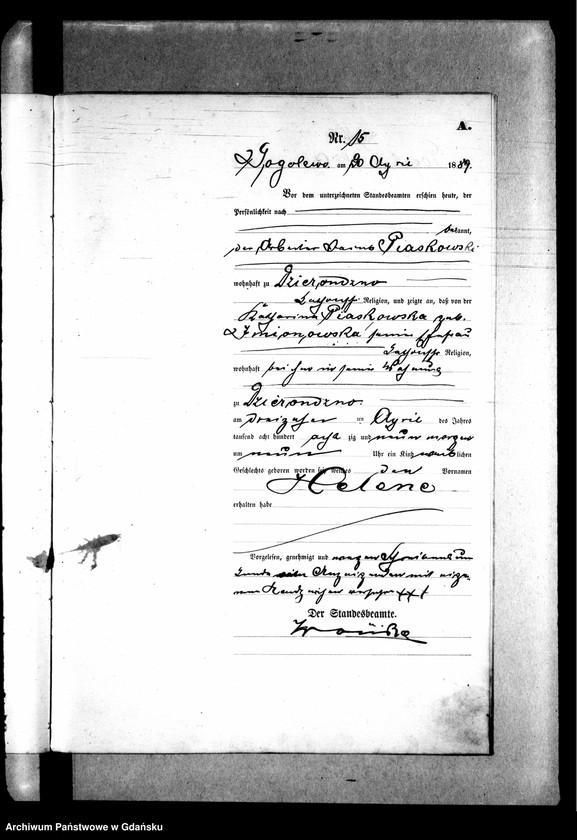 A.
Nr. 15
Gogolewo am 20 April 1889.
Vor dem unterzeichneten Standesbeamten erschien heute, der
Persönlichkeit nach
bekannt,
der Arbeiter Piaskowski
wohnhaft zu Dzierondzno
Religion, und zeigte an, daß von der
Katharina Piaskowska geb.
seiner Ehefrau
Religion,
wohnhaft bei ihm in seiner Wohnung
zu Dzierondzno
am dreizehn ten April des Jahres
tausend acht hundert acht zig und neun morgens
um neun Uhr ein Kind weiblichen
Geschlechts geboren worden sei, welches den Vornamen
Helene
erhalten habe
Vorgelesen, genehmigt und wegen Schreibensun
kunde Anzeigenden mit eige
nem Handzeichen versehen +++
Der Standesbeamte.
Archiwum Państwowe w Gdańsku